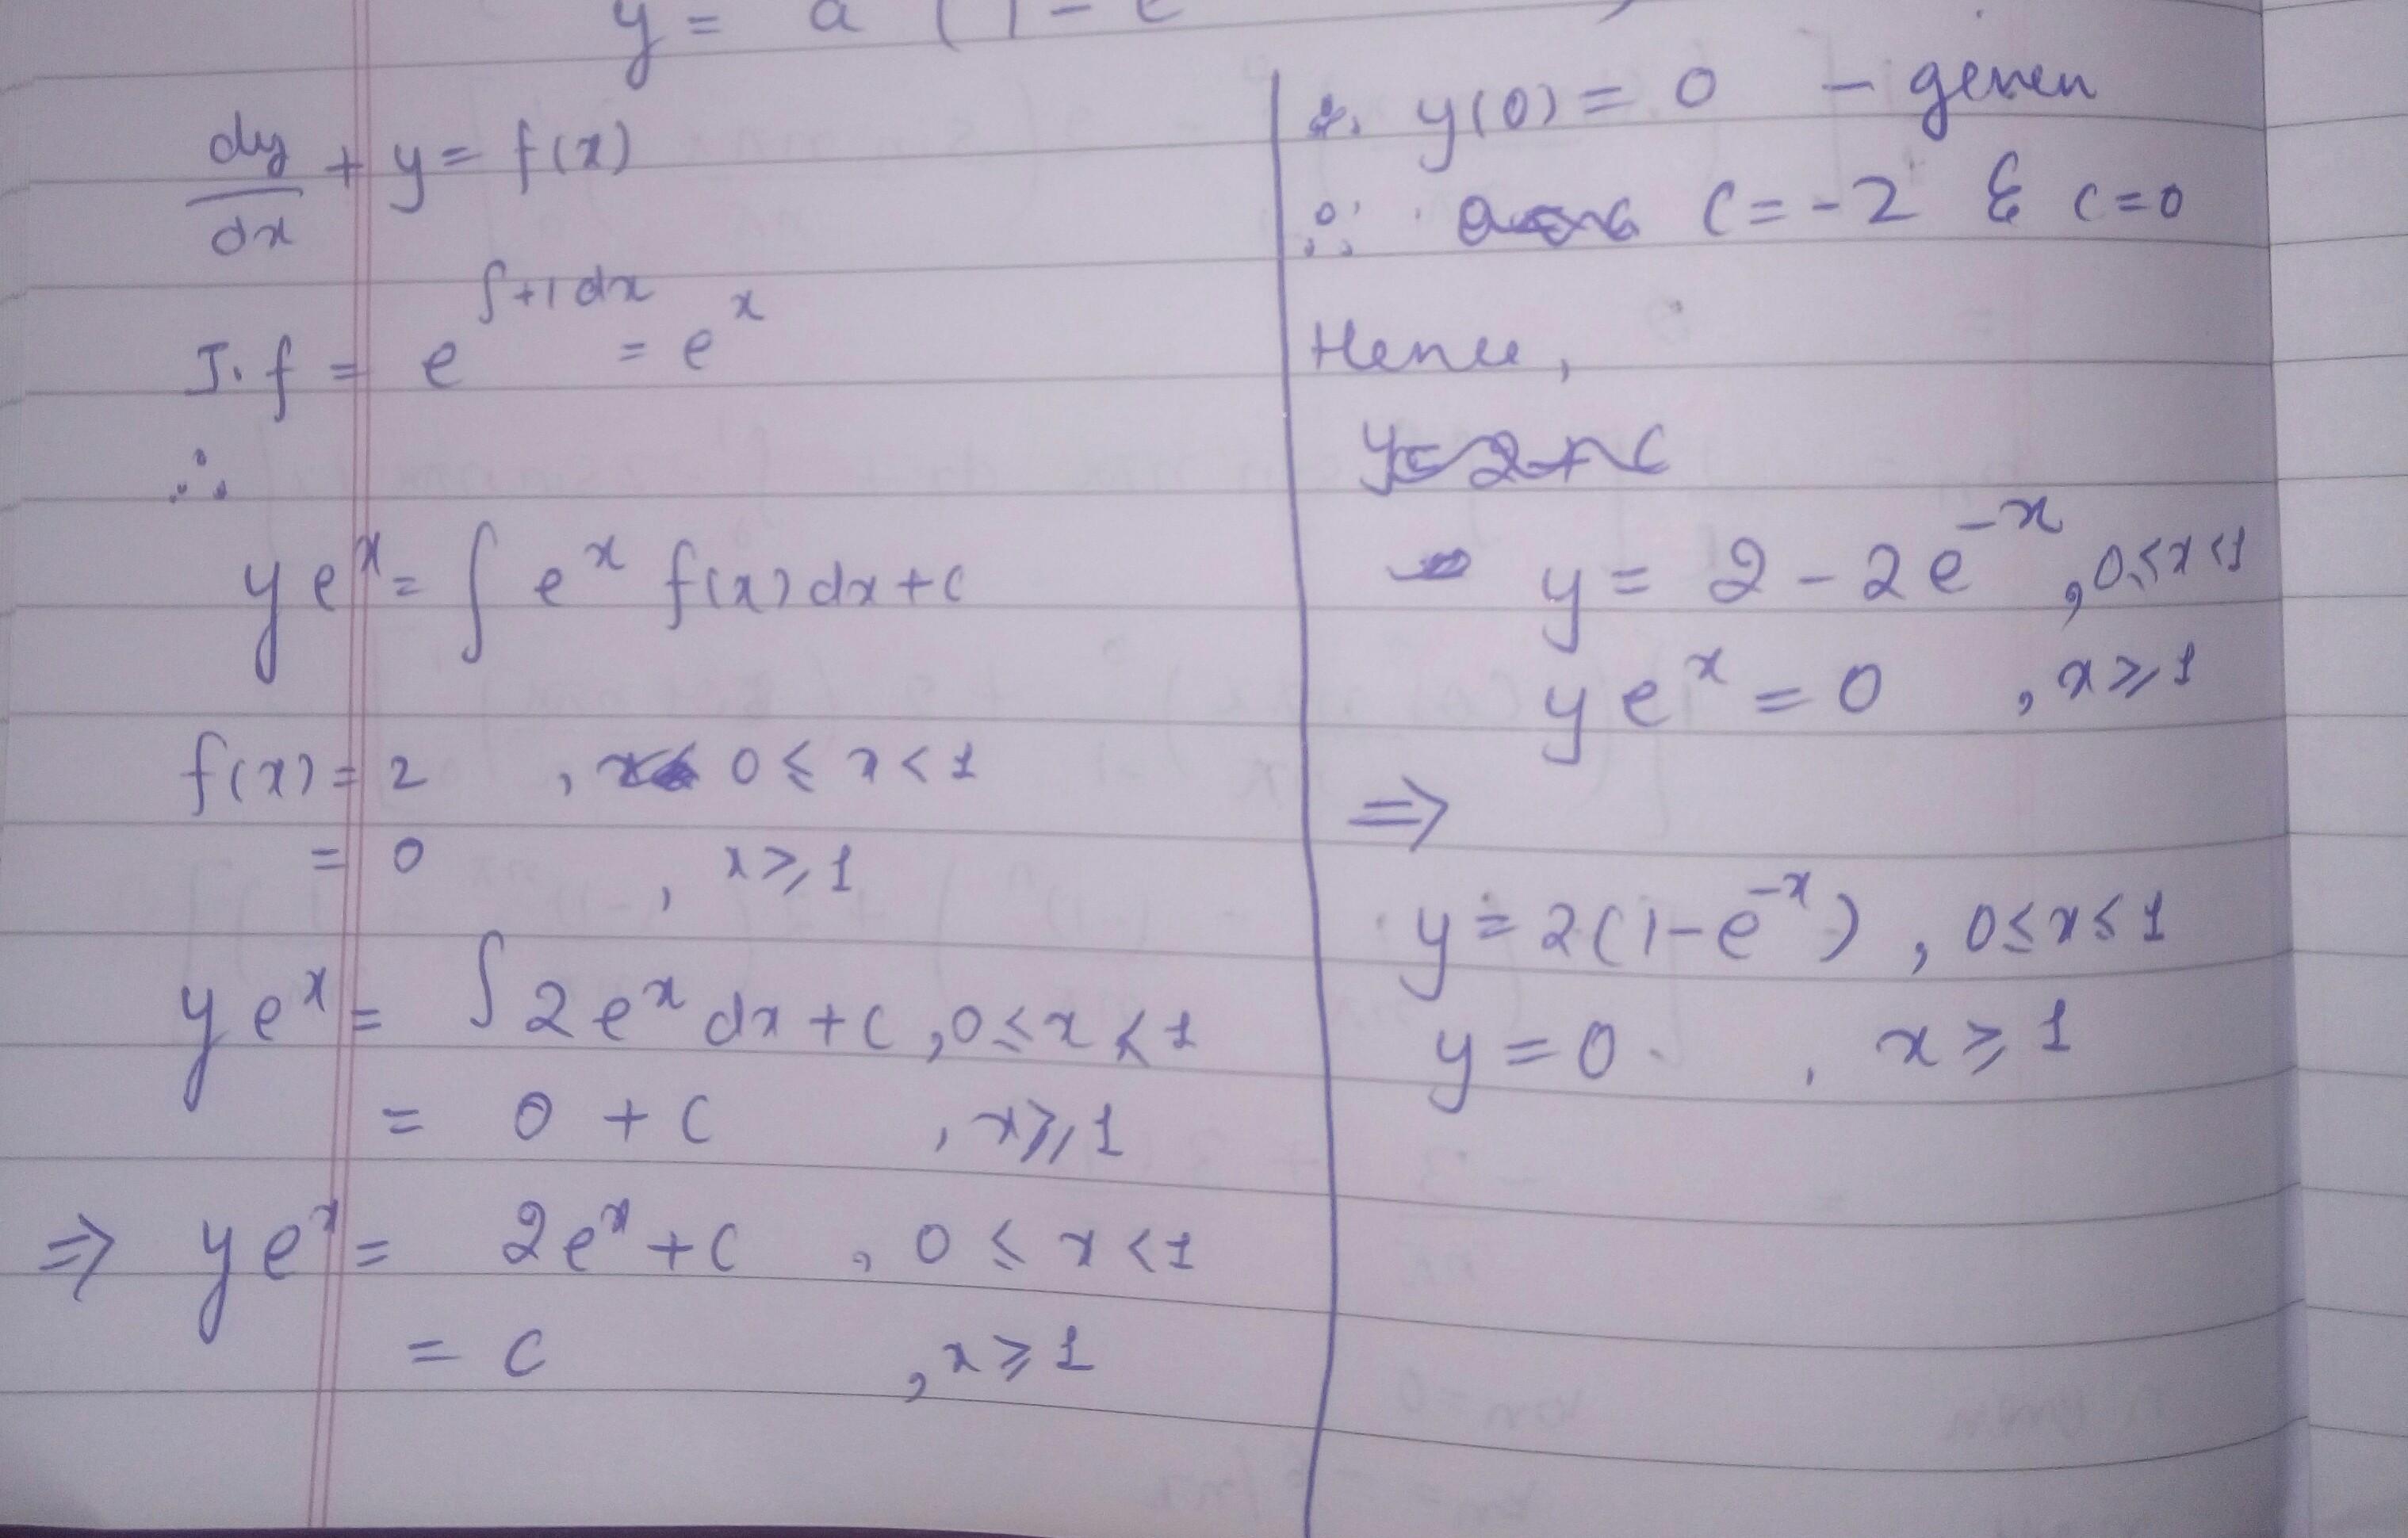 y = a (1 - e
dy/dx + y = f(x)
I.f = e^∫+1dx = e^x
∴
ye^x = ∫ e^x f(x)dx + c
f(x) = 2 , 0 ≤ x < 1
= 0 , x ≥ 1
ye^x = ∫2e^x dx + c , 0 ≤ x < 1
= 0 + c , x ≥ 1
⇒ ye^x = 2e^x + c , 0 ≤ x < 1
= c , x ≥ 1
y(0) = 0 - geven
∴ C = -2 & c = 0
Hence,
y = 2 + c
y = 2 - 2e^-x , 0 ≤ x < 1
ye^x = 0 , x ≥ 1
⇒
y = 2(1 - e^-x) , 0 ≤ x ≤ 1
y = 0 , x ≥ 1